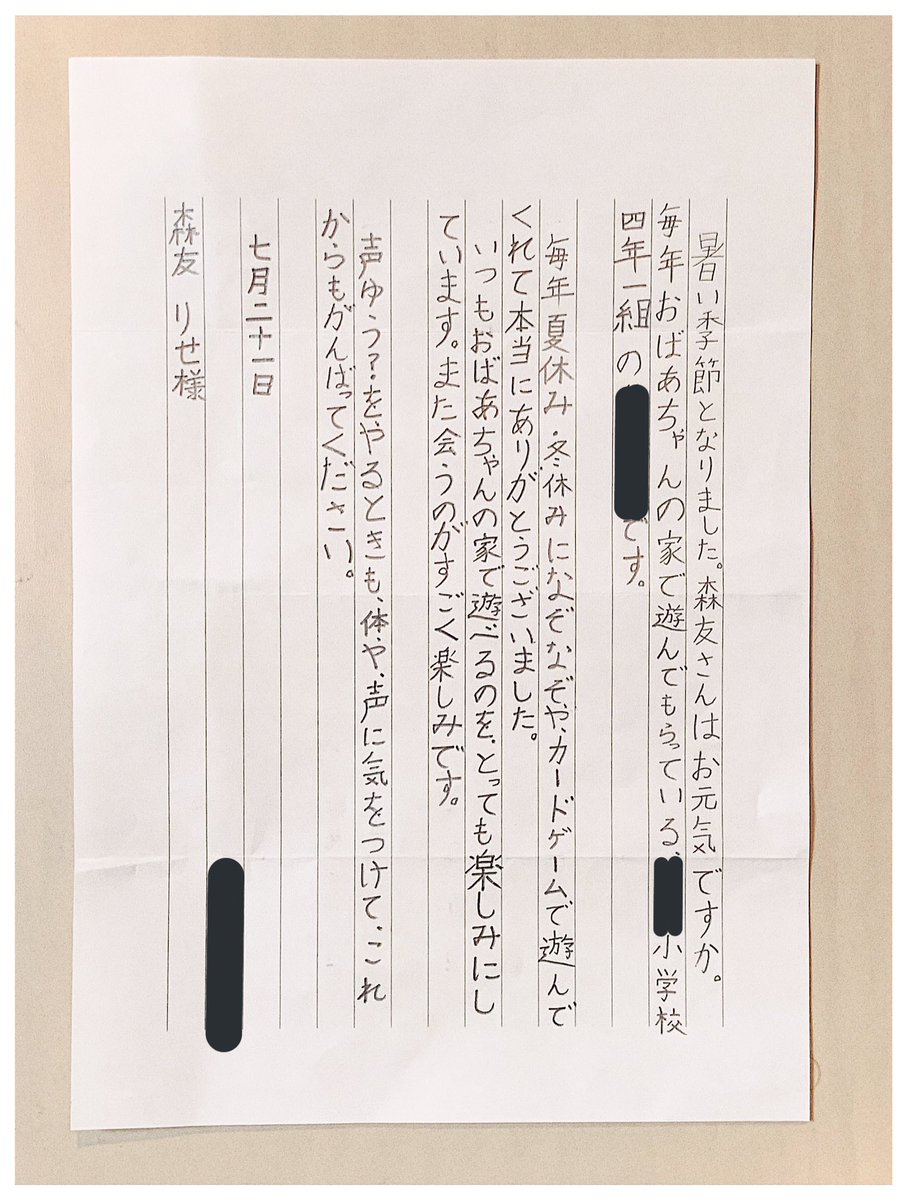 暑い季節となりました。森友さんはお元気ですか。
毎年おばあちゃんの家で遊んでもらっている、小学校
四年一組のです。
毎年夏休み・冬休みになぞなぞや、カードゲームで遊んで
くれて本当にありがとうございました。
いつもおばあちゃんの家で遊べるのを、とっても楽しみにし
ています。また会うのがすごく楽しみです。
声ゆう?をやるときも、体や、声に気をつけて、これ
からもがんばってください。
七月二十一日
森友 りせ様